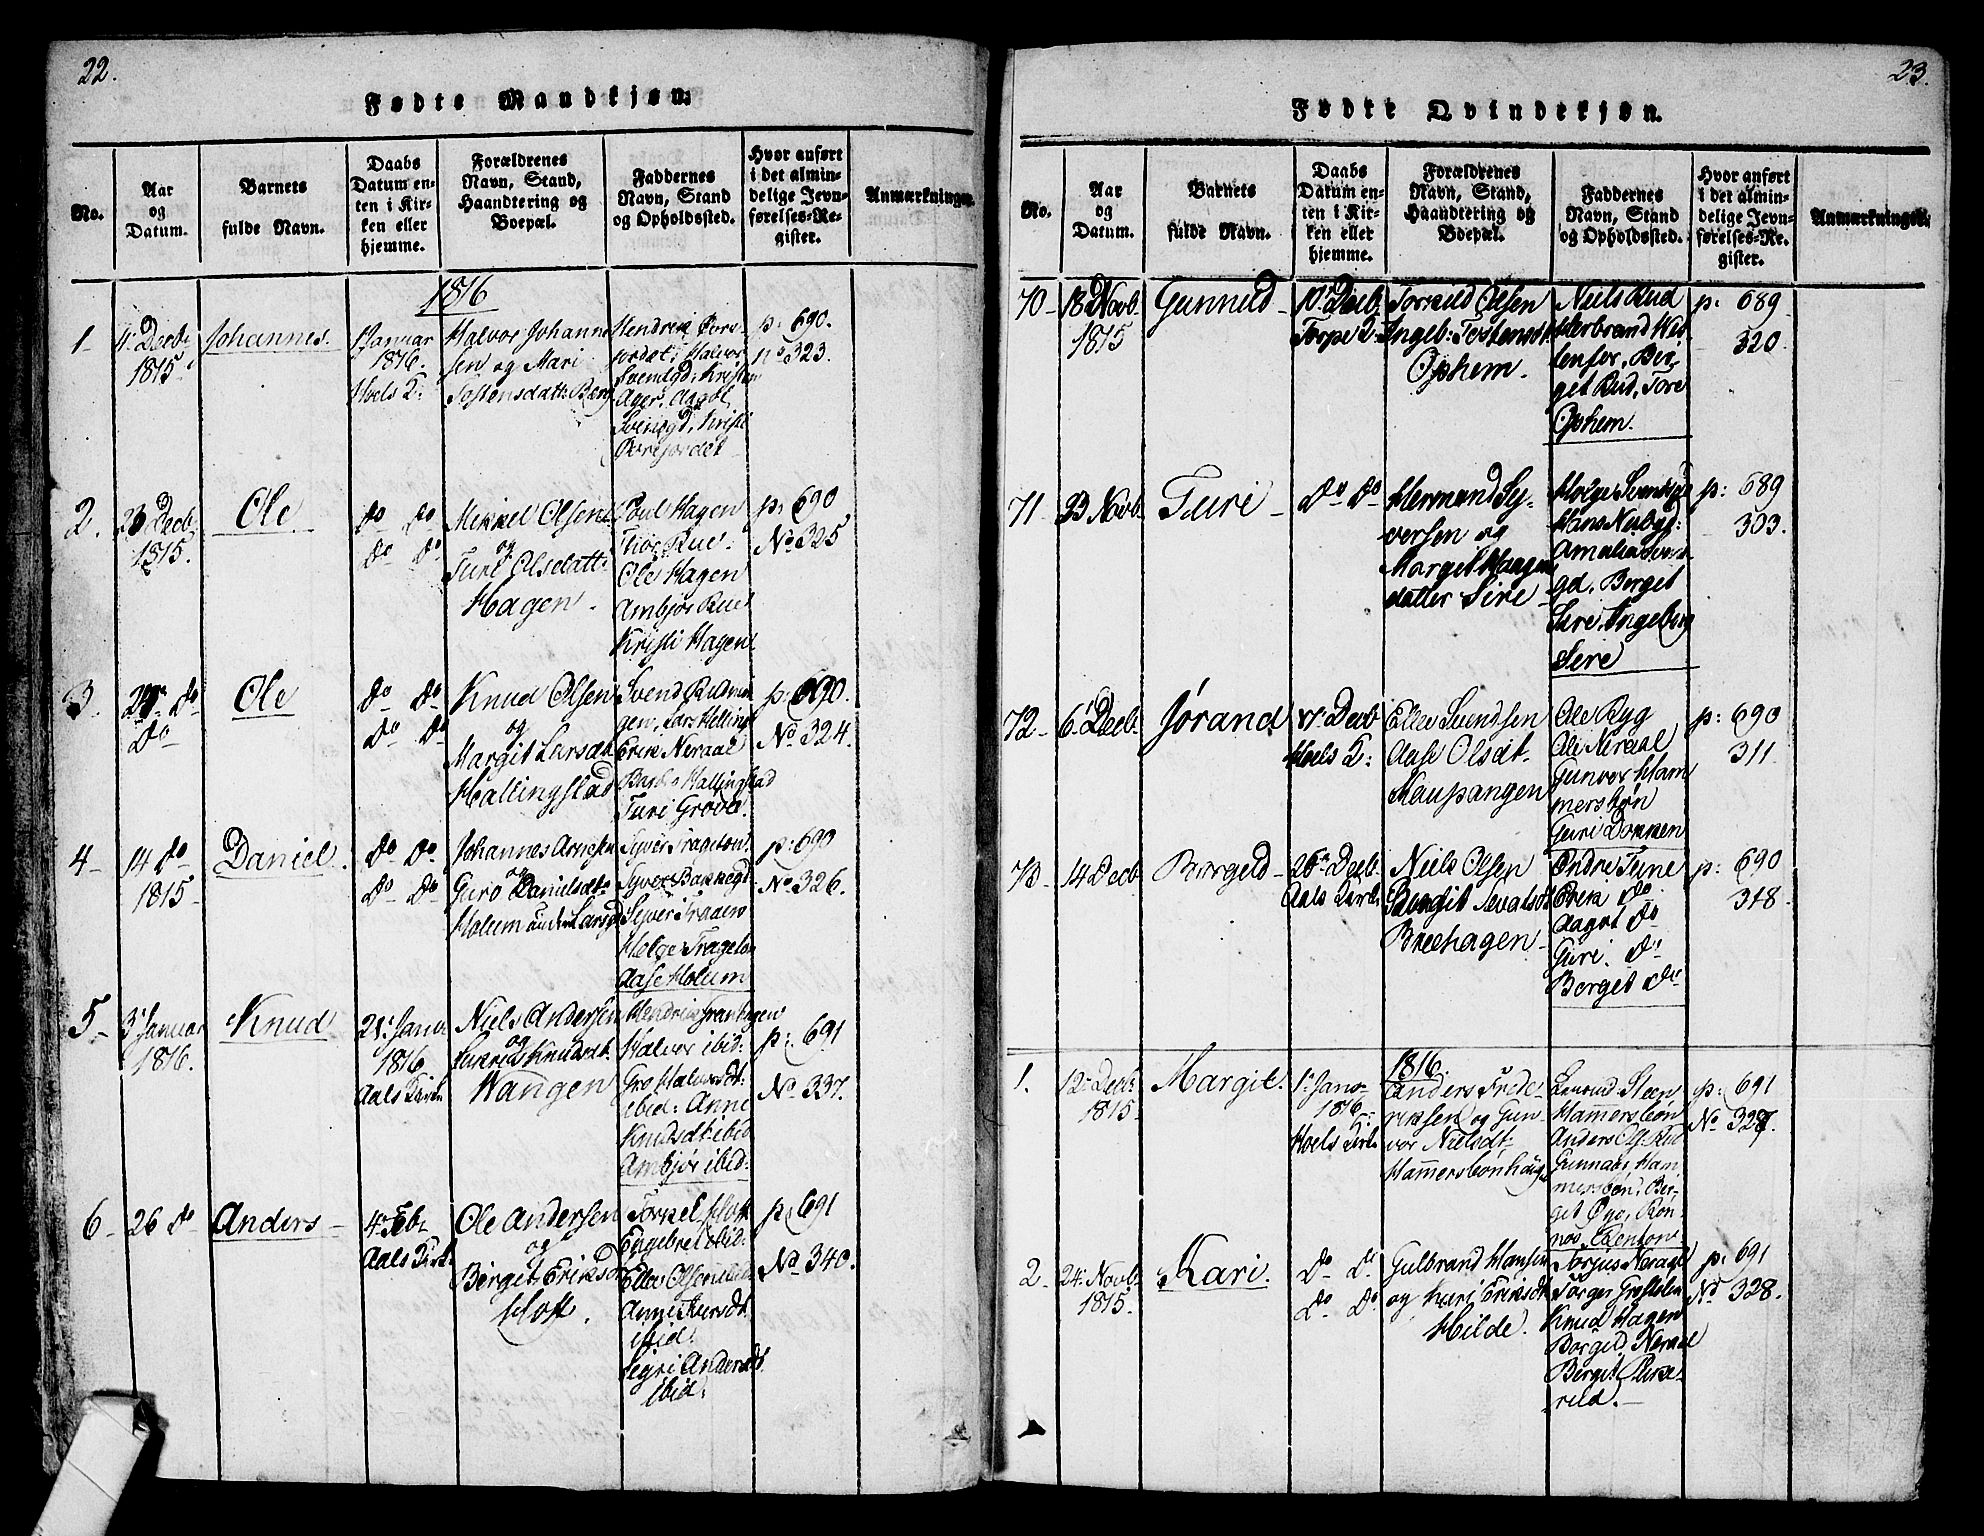 22.
Fødte Mandkjøn.
No.
Aar og Datum.
Barnets fulde Navn.
Daabs Datum enten i Kirken eller hjemme.
Forældrenes Navn, Stand, Haandtering og Boepæl.
Faddernes Navn, Stand og Opholdssted.
Hvor anført i det almindelige Jevnførelses-Register.
Anmærkninger.
1816
1
4. Decbr
1815.
Johannes.
1 Januar
1816.
Hoels K:
Halvor Johanne
sen og Mari
Tostensdatt: Berg
Hendrik
jordet; Halvor
Svendgd: Kristen
Ager. Aagot
Svensgd, Kristi
Borejordet
p: 690.
No 323.
2.
23 Decbr
1815.
Ole
do do
do do
Mikkel Olsen
og
Turi Olsdatt:
Hagen.
Poul Hagen
Thor Rue.
Ole Hagen
Ambjør Rue
Kristi Hagen
p: 690
No 325
3.
29 do
do
Ole
do do
do do
Knud Olsen
og
Margit Larsdt.
Hallingstad
Svend Rudmin
gen, Lars Helling
Erik Neraal
Barbo Hallingstad
Turi Grove.
p: 690.
No 324.
4
14 do
1815
Daniel.
do do
do do
Johannes Arnesen
og
Guro Danielsdt.
Holum under Larsgd
Syver Trageton
Syver Bakkegd
Syver Traaen
Helge Trageton
Aase Holum
p: 690
No 326.
5
3 Januar
1816.
Knud
21. Janu
1816
Aals Kirke
Niels Andersen
og
Knudsdt.
Wangen
Hendrik Grønhagen
Halvor ibid:
Gro Halvorsdt:
ibid: Anne
Knudsdt ibid
Ambjør ibid:
p: 691
No 337.
6
26 do
Anders
4. Febr
Aals Kirk:
Ole Andersen
og
Birgit Eriksdt
Hoft.
Torkel Hoft
Engebret ibid:
Ellev Olsen ibid
Anne Iversdt.
ibid.
Segri Andersdt
ibid:
p: 691
No 340.
23.
Fødte Qvindekjøn.
No.
Aar og Datum.
Barnets fulde Navn.
Daabs Datum enten i Kirken eller hjemme.
Forældrenes Navn, Stand, Haandtering og Boepæl.
Faddernes Navn, Stand og Opholdssted.
Hvor anført i det almindelige Jevnførelses-Register.
Anmærkninger.
70
18 Novb.
1815
Gunnild
10 Decb.
Torpe K:
Torkild Olsen
Ingeb: Tostensdt
Ophem.
Niels Rud
Herbrand
Ber-
get Rud, Tore
Ophem.
p: 689
320.
71
23 Novb.
Turi
do do
Hermand Sy-
versen og
Margit Haagens
datter Sire
Helge Svensgd
Hans
Amalia Svens
gd. Berget
Sire, Ingeborg
Sire
p: 689
303.
72
6 Decb.
Jørand
17. Decb
Hoels K:
Ellev Svendsen
Aase Olsdt.
Kaupangen
Ole Ryg
Ole Neraal
Gunvor Ham
mersbøn
Guri Dokken
p: 690
311
73
14 Decb
Børgeld
26. Decb.
Aals Kirk:
Niels Olsen
Birgit Sevatsdt
Breehagen
Endre Tune
Erik do
Aagot do
Guri. do
Berget do
p: 690
318.
1816.
1.
12. Decb.
1815
Margit.
1. Janu
1816
Hoels Kirk:
Anders Fride-
riksen og Gun-
vor Nielsdt
Hammersbønhaug
Steen
Hammersbøn
Anders
Gunnar, Ham
mersbøn, Ber-
get Øyo,
p: 691
No 327.
2.
24. Novb.
1815.
Kari.
do do
do do
Gulbrand Hansen
og Kari Eriksdt
Hilde.
Torjus Neraal
Torger
Knud Hagen
Borgild Neraal
Berget
rud.
p: 691
No 328.